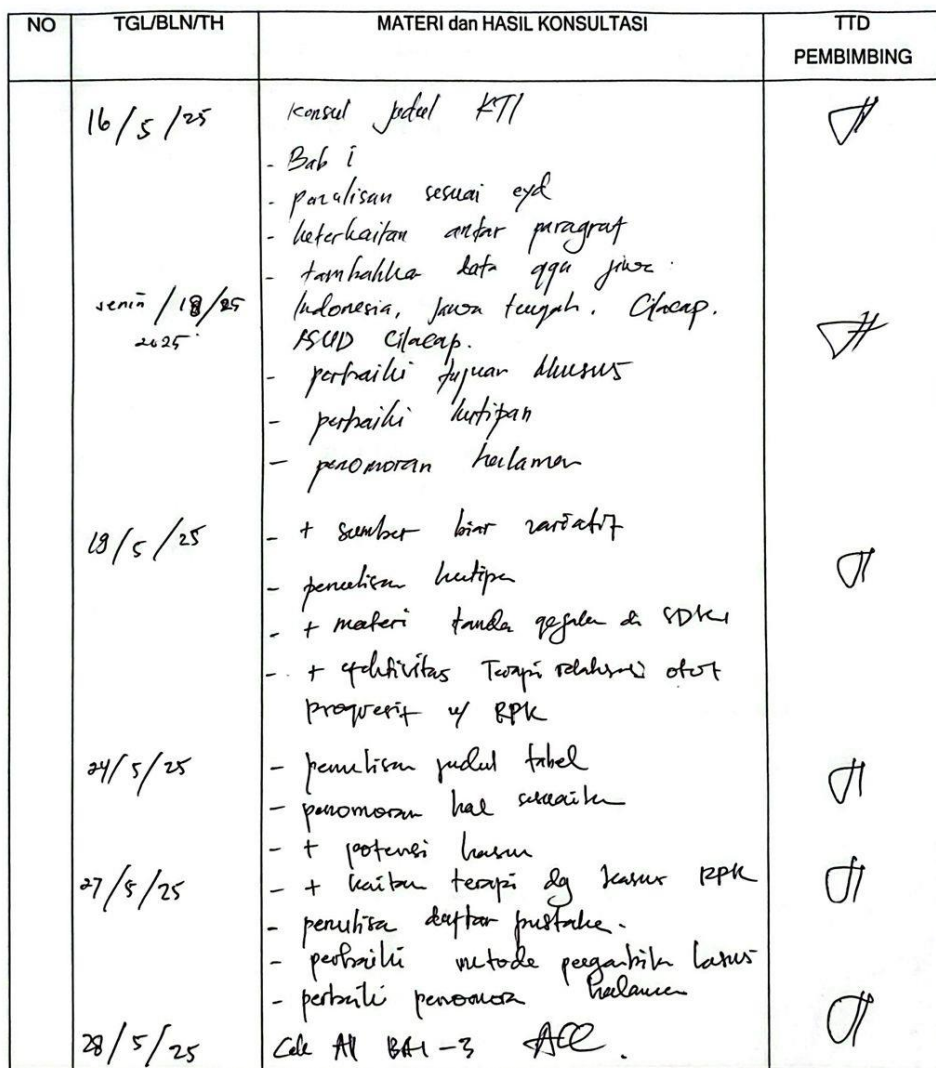 NO TGL/BLN/TH MATERI dan HASIL KONSULTASI TTD PEMBIMBING
16/5/25 Konsul judul KTI
- Bab I
- penulisan sesuai eyd
- keterkaitan antar paragraf
- tambahka data ggn jiwa
senin /18/25 Indonesia, Jawa tengah. Cilacap.
2025 RSUD Cilacap.
- perbaiki tujuan khusus
- perbaiki kutipan
- penomoran halaman
19/5/25 - + sumber biar variatif
- penulisan kutipa
- + materi tanda gejala di SDKI
- + efektivitas Terapi relaksasi otot
progresif w/ RPK
24/5/25 - penulisan judul tabel
- penomoran hal sesuaika
- + potensi kasus
27/5/25 - + kaitan terapi dg kasus RPK
- penulisa daftar pustaka.
- perbaiki metode pengambila kasus
- perbaiki penomora halaman
28/5/25 Cek BAB 1-3 ACC.